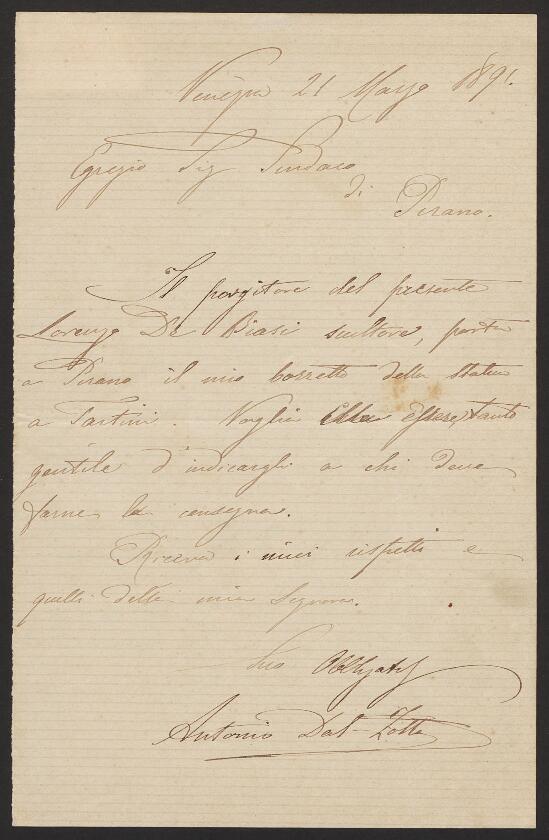 Venezia 21 Marzo 1891.
Egregio Sig Sindaco
di
Pirano.
Il porgitore del presente
Lorenzo De Biasi scultore, porta
a Pirano il mio bozzetto della statua
a Tartini. Voglia Ella essere tanto
gentile d'indicargli a chi deve
farne la consegna.
Riceva i miei rispetti e
quelli della mia Signora.
Suo Obbligatis
Antonio Dal Zotto